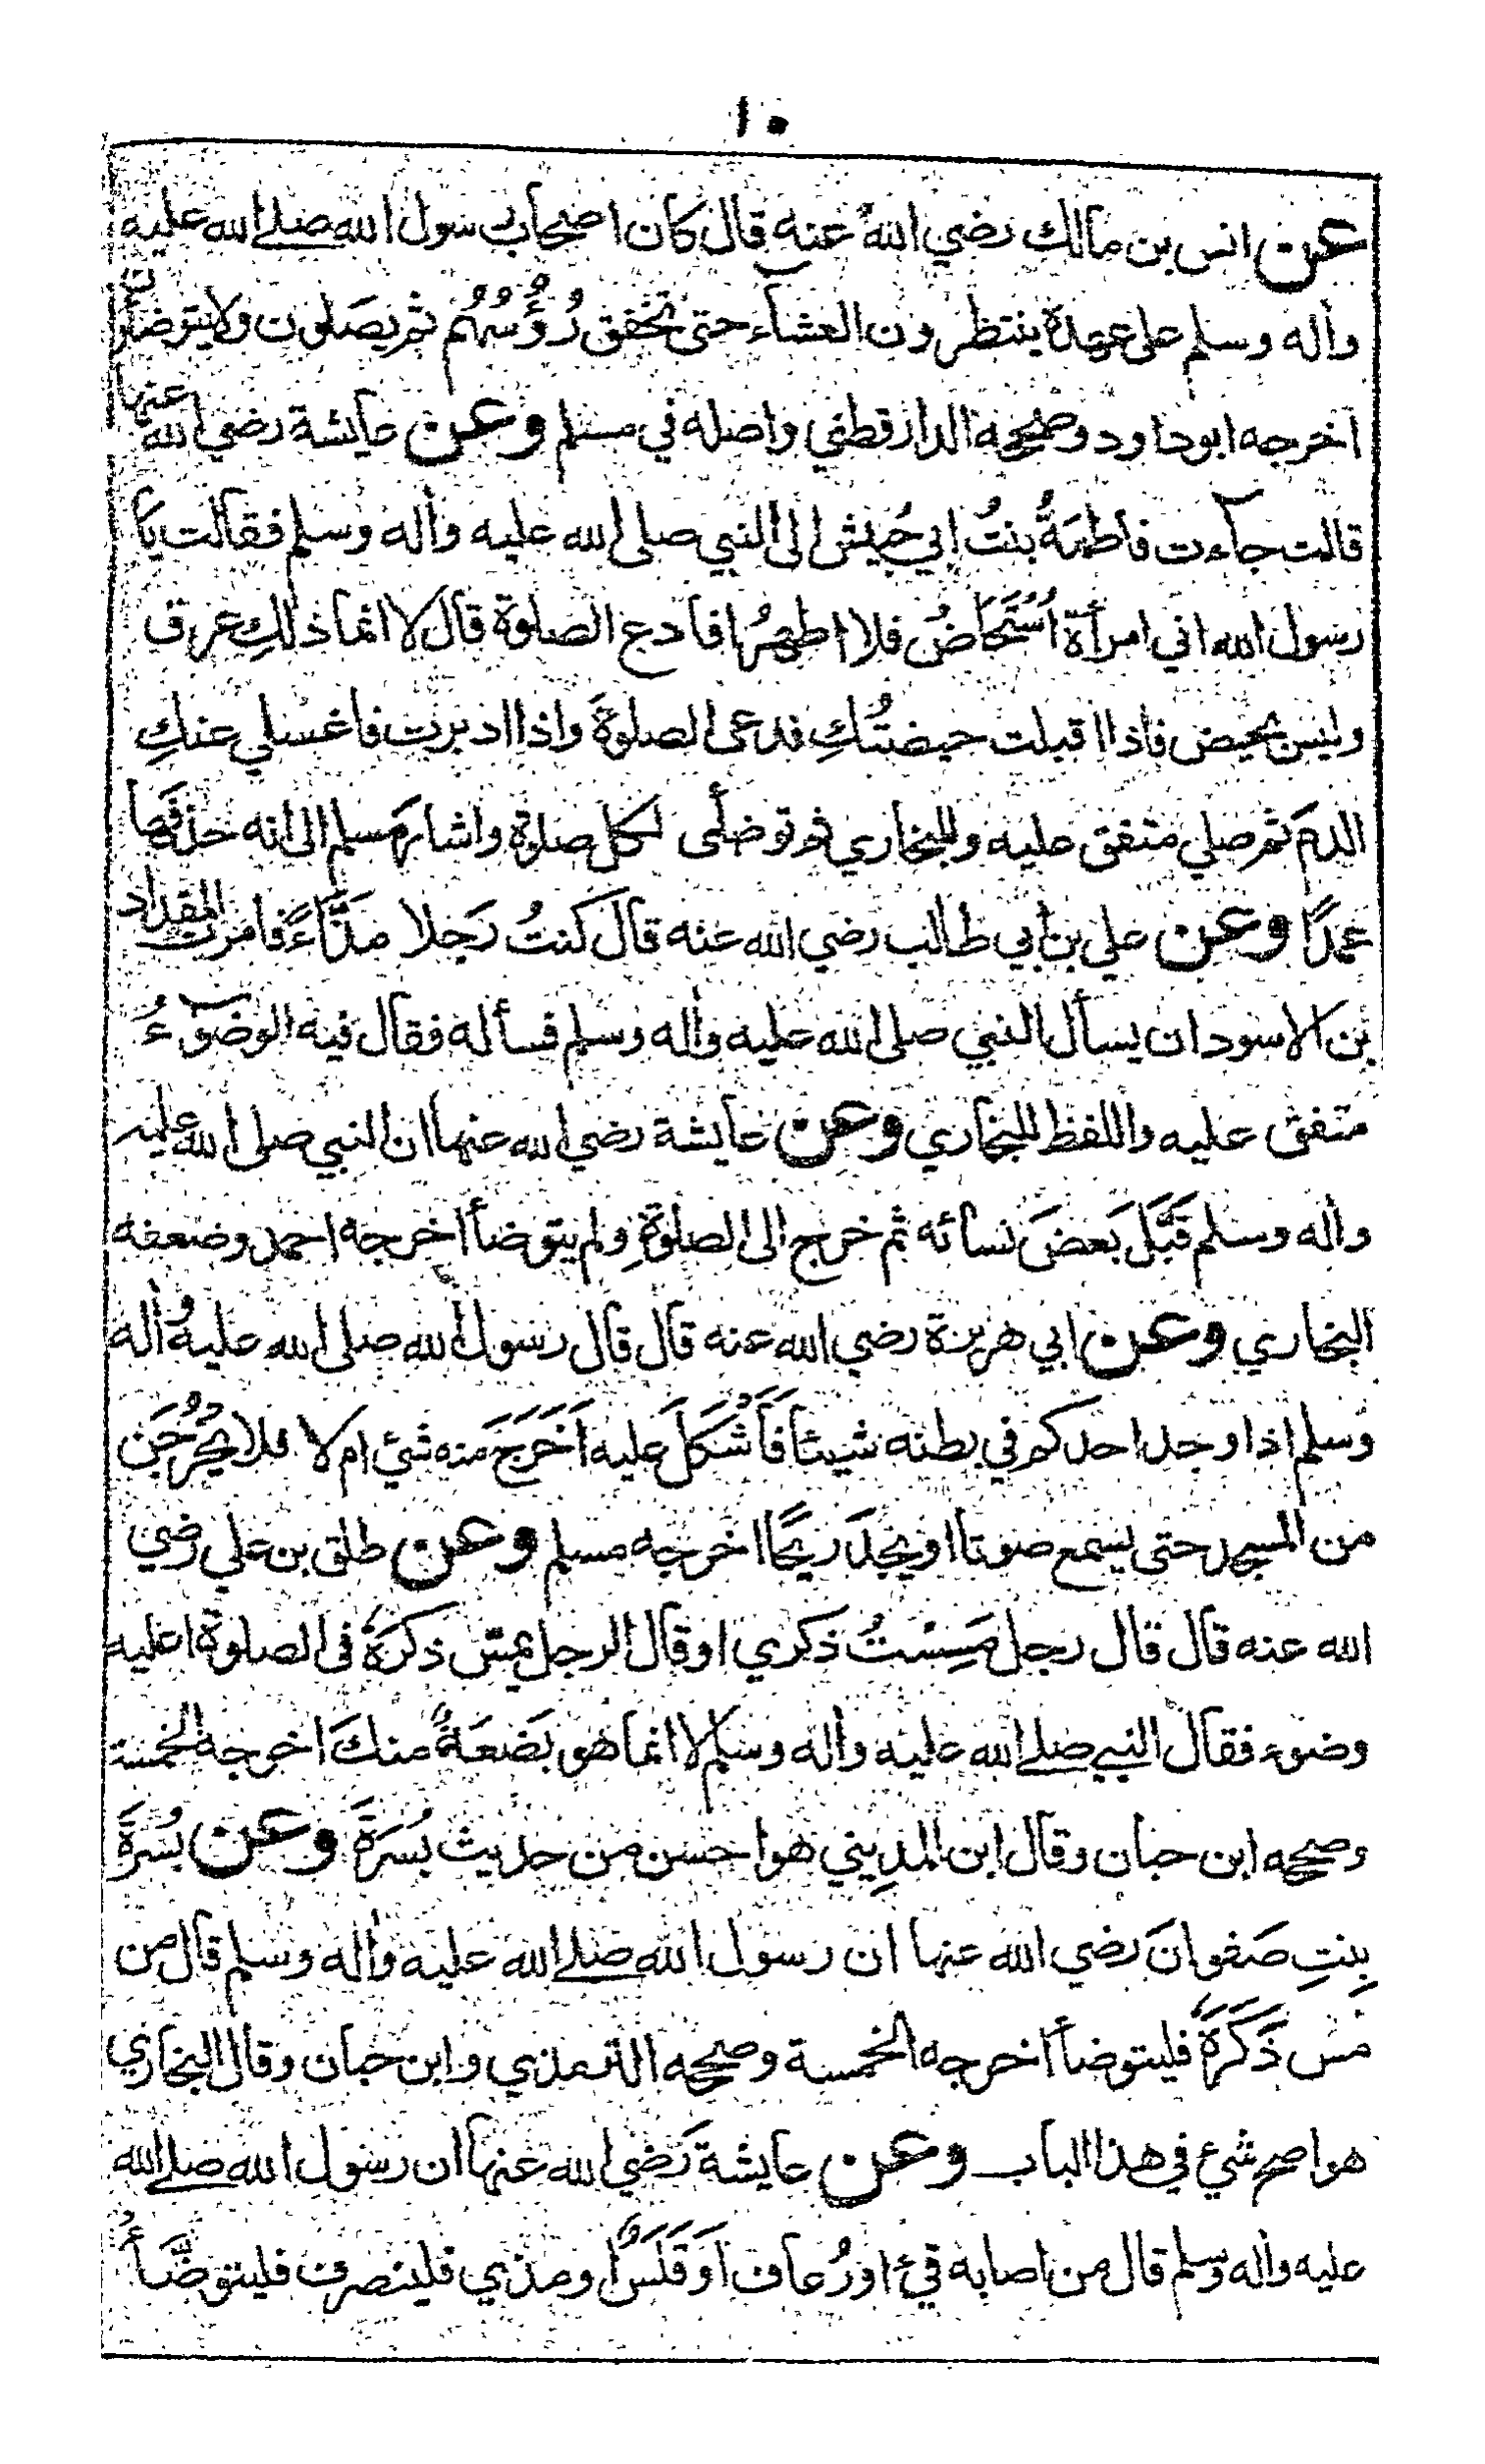 ١٠
عن انس بن مالك رضي الله عنه قال كان اصحاب رسول الله صلے الله عليه
وأله وسلم على عهده ينتظرون العشآء حتى تخفق رُؤُسُهُم ثم يصَلون ولا يتوضَّأُون
اخرجه ابوداود وصححه الدارقطني واصله في مسلم وعن عايشة رضي الله عنها
قالت جآءت فاطمَةُ بنتُ ابي حُبيش الى النبي صلى الله عليه وأله وسلم فقالت يا
رسول الله اني امرأة اُسْتَحَاضُ فلا اطهرُ افادع الصلوة قال لا انما ذلكِ عرق
وليس بحيض فاذا اقبلت حيضتُكِ فدعى الصلوةَ واذا ادبرت فاغسلي عنكِ
الدمَ ثم صلي متفق عليه وللبخاري ثم توضأى لكل صلوةٍ واشار مسلم الى انه حذفَها
عمدًا وعن علي بن أبي طالب رضي الله عنه قال كنتُ رَجلا مذَّآءً فامرت المقداد
بن الاسود ان يسأل النبي صلى الله عليه وأله وسلم فسأله فقال فيه الوضوٓءُ
متفق عليه واللفظ للبخاري وعن عايشة رضي الله عنها ان النبي صلى الله عليه
وأله وسلم قَبَّلَ بَعضَ نسائه ثم خرج الى الصلوةِ ولم يتوضأ اخرجه احمد وضعفه
البخاري وعن ابي هريرة رضي الله عنه قال قال رسول الله صلى الله عليه وأله
وسلم اذا وجد احدكم في بطنه شيئاً فَأَشْكَلَ عليه اَخَرَجَ منه شئ ام لا فلا يَخْرُجَن
من المسجد حتى يسمع صوتا او يجدَ ريحًا اخرجه مسلم وعن طلق بن علي رضي
الله عنه قال قال رجل مَسِسْتُ ذكري او قال الرجل يمسّ ذكرَهُ فى الصلوة اعليه
وضوء فقال النبي صلے الله عليه وأله وسلم لا انما هو بَضعَةٌ منكَ اخرجه الخمسة
وصححه ابن حبان وقال ابن المدِيني هو احسن من حديث بُسرَةَ وعن بُسرَةَ
بِنتِ صَفوانَ رضي الله عنها ان رسول الله صلے الله عليه وأله وسلم قال من
مَس ذَكَرَهُ فليتوضأ اخرجه الخمسة وصححه الترمذي وابن حبان وقال البخاري
هو اصح شئ في هذا الباب وعن عايشة رَضي الله عنها ان رسول الله صلے الله
عليه وأله وسلم قال من اصابه قئ او رُعاف اَو قَلَسٌ او مذي فلينصرف فليتوضَّأْ